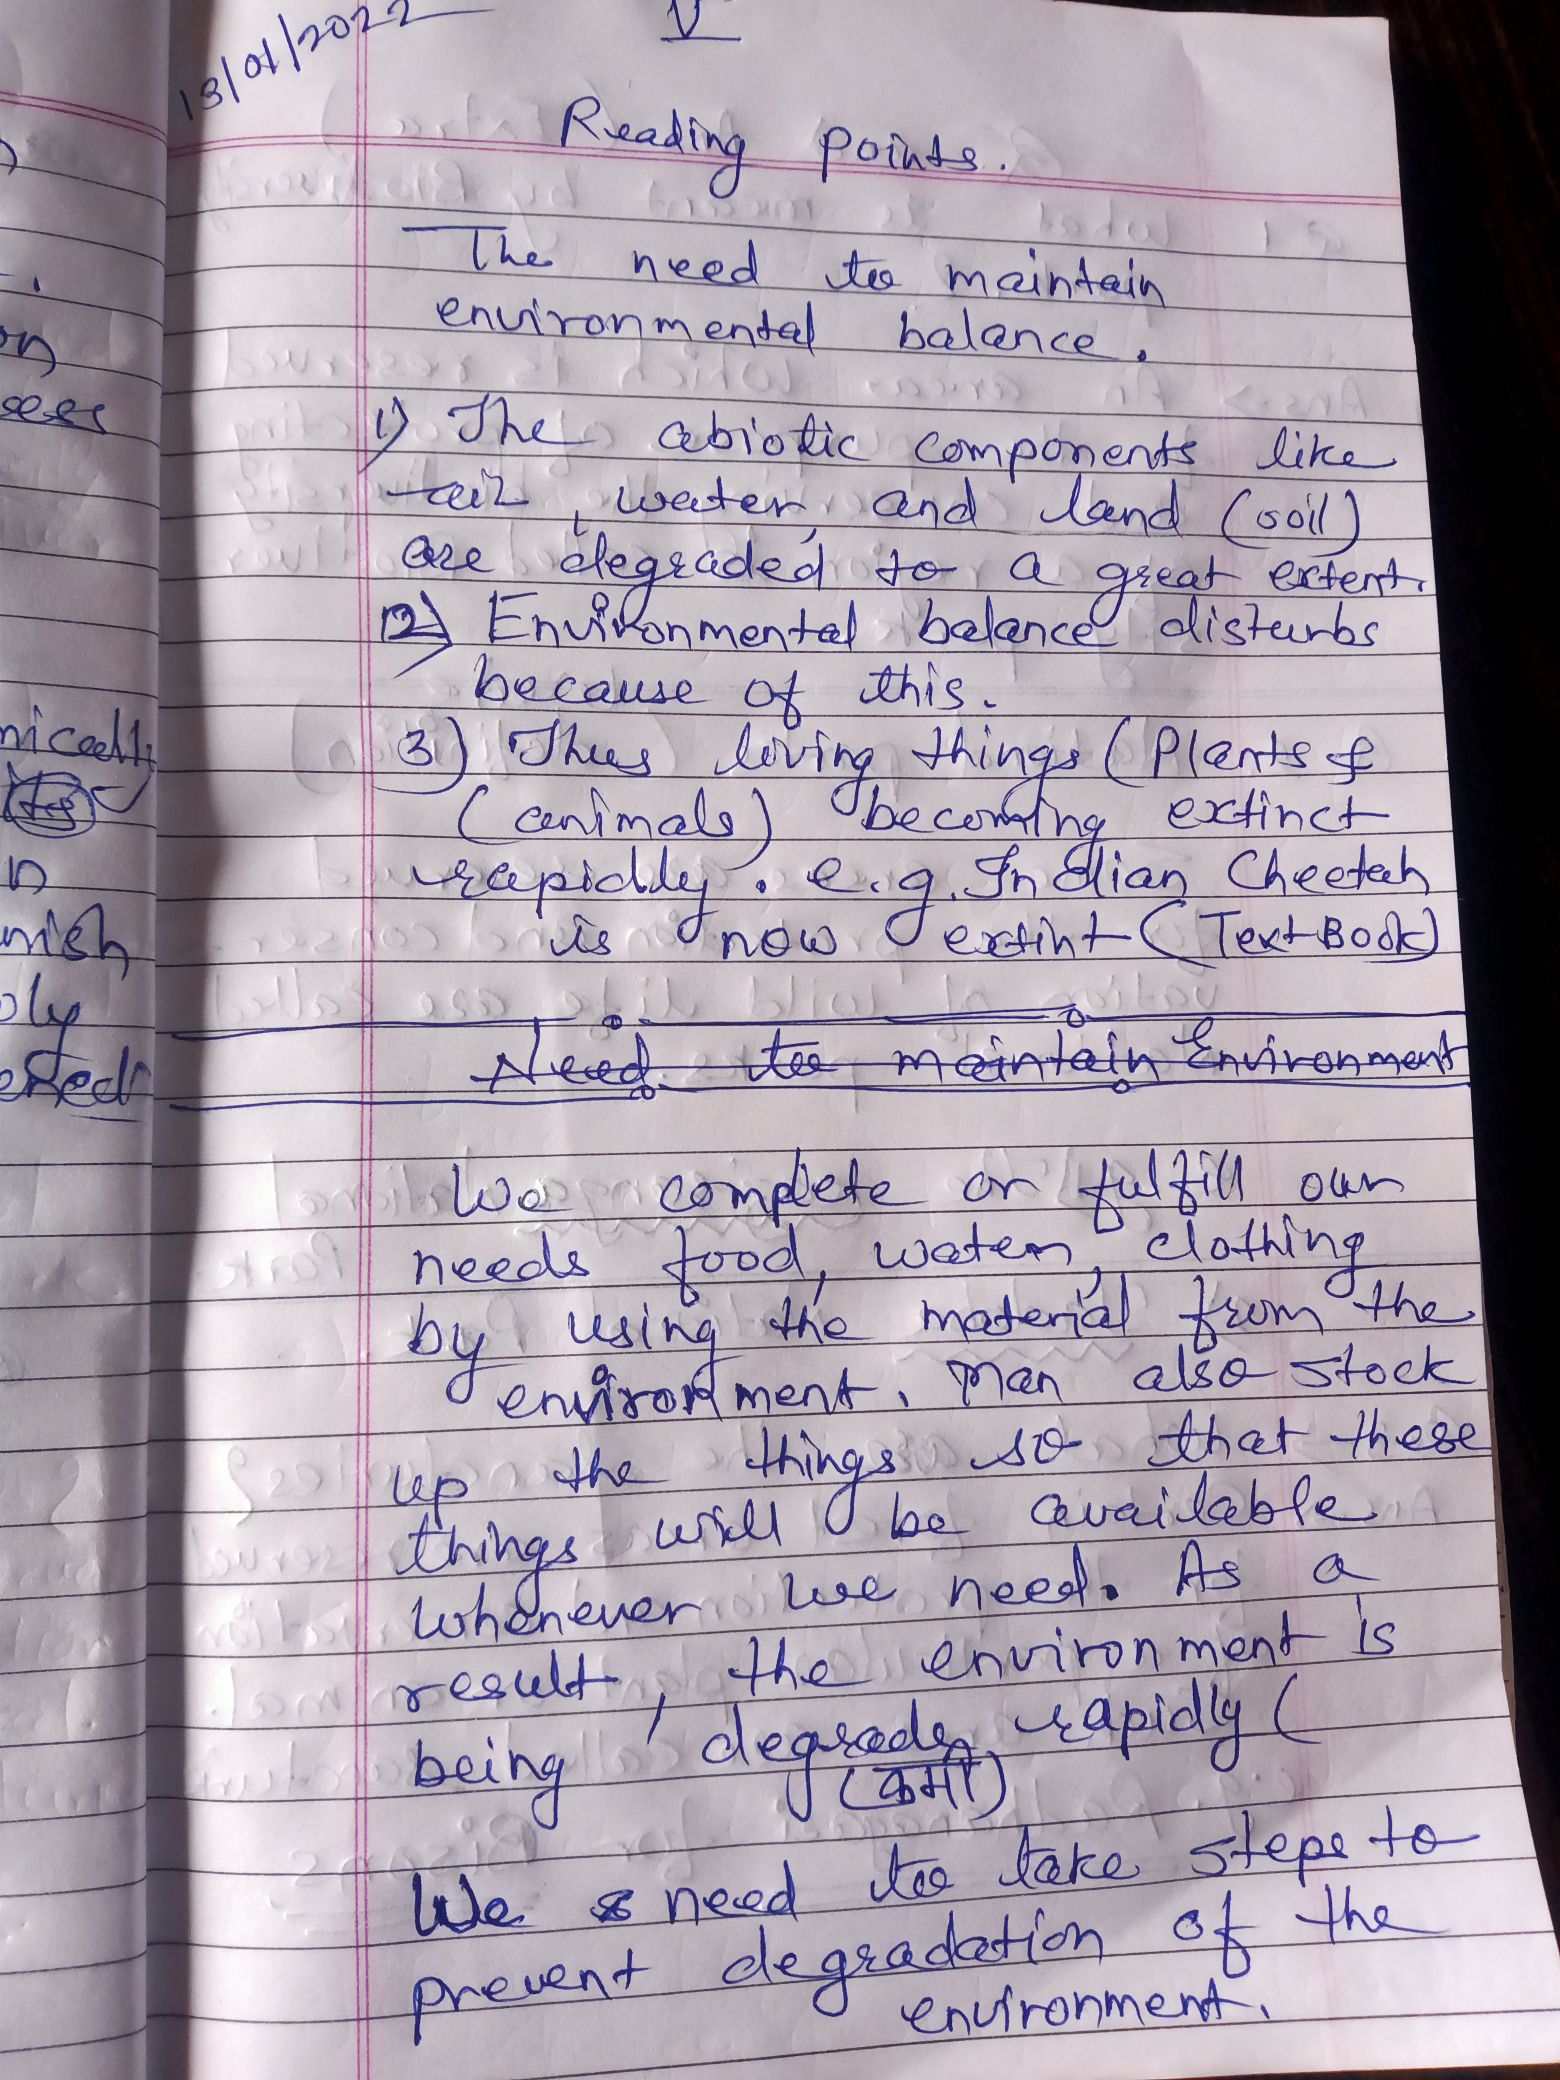 13/01/2022
V
Reading points.
The need to maintain
environmental balance.
1) The abiotic components like
air, water, and land (soil)
are degraded to a great extent.
2) Environmental balance disturbs
because of this.
3) Thus living things (Plants &
(animals) becoming extinct
rapidly. e.g. Indian Cheetah
is now extint (Text Book)
Need to maintain Environment
We complete or fulfill our
needs food, water, clothing
by using the material from the
environment. Man also stock
up the things so that these
things will be available
whenever we need. As a
result, the environment is
being degrade rapidly (
(कमी)
We need to take steps to
prevent degradation of the
environment.